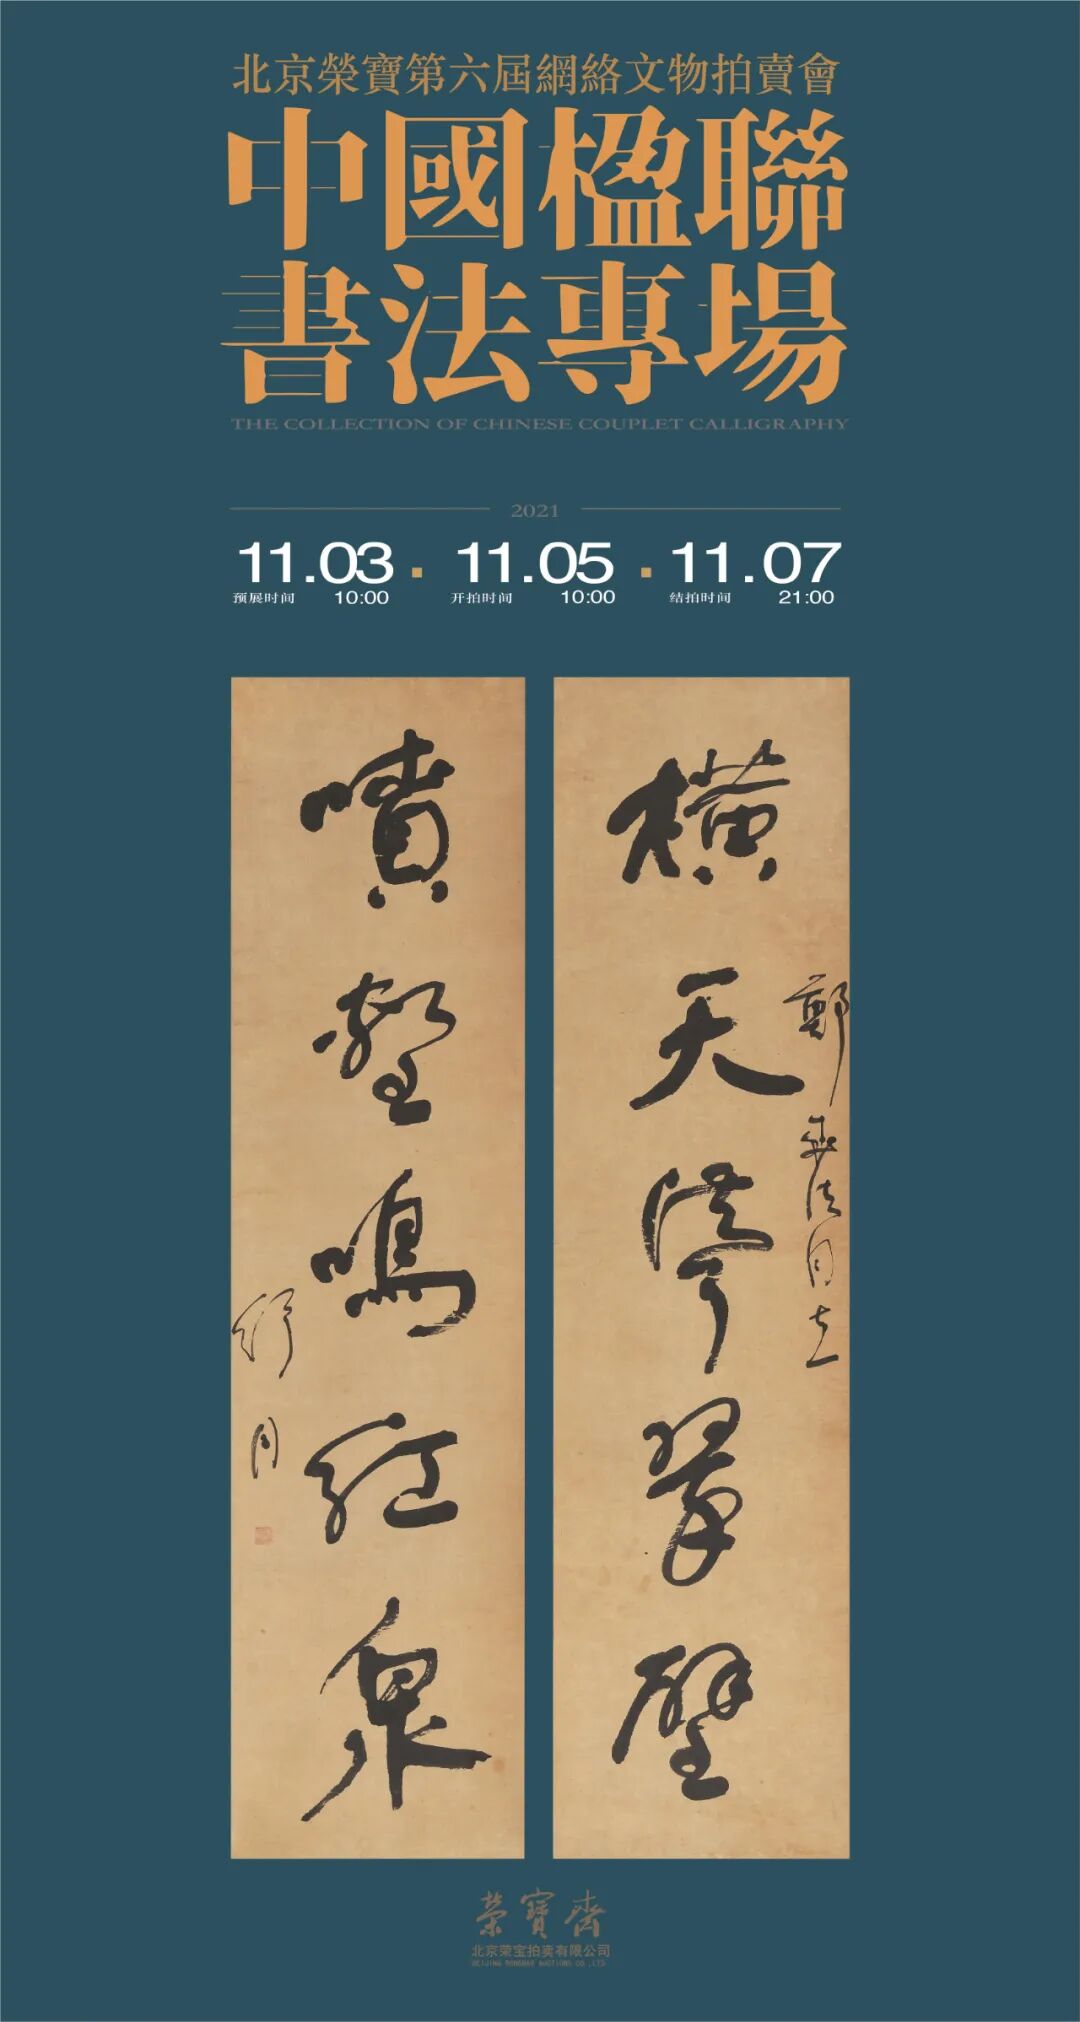 北京榮寶第六屆網絡文物拍賣會
中國楹聯
書法專場
THE COLLECTION OF CHINESE COUPLET CALLIGRAPHY
2021
11.03 · 11.05 · 11.07
预展时间 10:00 开拍时间 10:00 结拍时间 21:00
橫天聳翠壁
噴壑鳴紅泉
舒同
榮寶齋
北京荣宝拍卖有限公司
BEIJING RONGBAO AUCTIONS CO.,LTD.